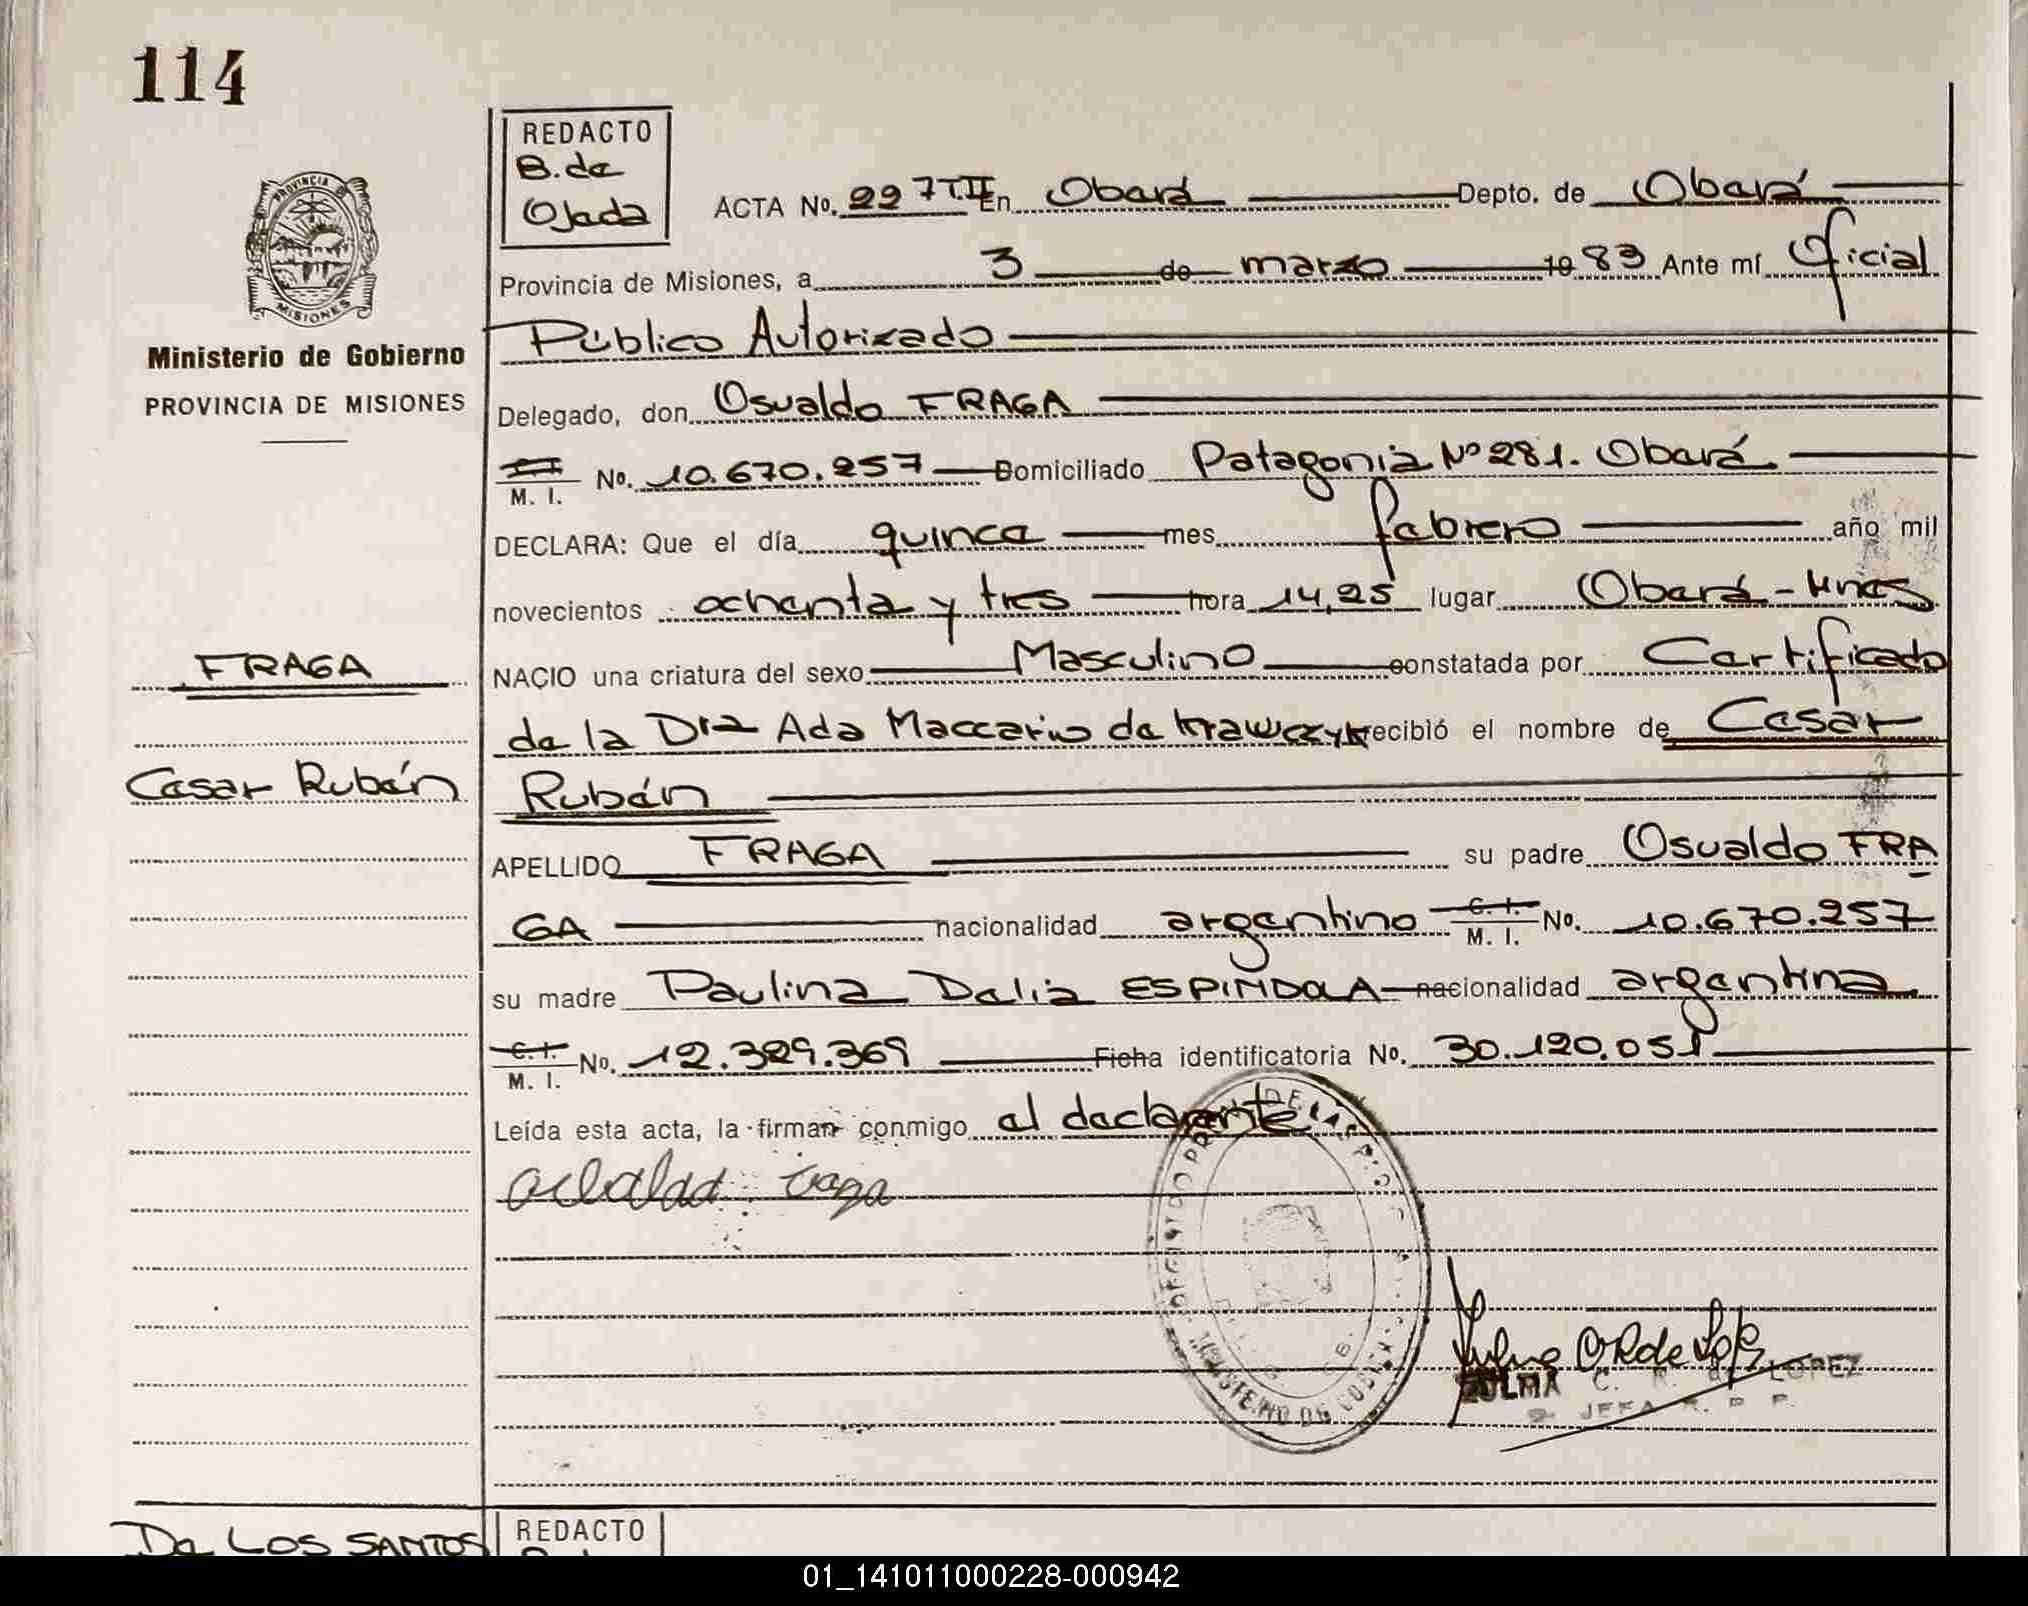 114
REDACTO
B. de
Ojeda
PROVINCIA DE
MISIONES
Ministerio de Gobierno
PROVINCIA DE MISIONES
ACTA No. 227 T.II En Oberá Depto. de Oberá
Provincia de Misiones, a 3 de marzo 1983 Ante mí Oficial
Público Autorizado
Delegado, don Osvaldo FRAGA
C. I.
M. I. No. 10.670.257 Domiciliado Patagonia Nº 281. Oberá
DECLARA: Que el día quince mes febrero año mil
novecientos ochenta y tres hora 14,25 lugar Oberá - Mnes
NACIO una criatura del sexo Masculino constatada por Certificado
de la Dra Ada Maccarino de Krawczyk recibió el nombre de Cesar
Rubén
FRAGA
Cesar Rubén
APELLIDO FRAGA su padre Osvaldo FRA
GA nacionalidad argentino C. I. M. I. No. 10.670.257
su madre Paulina Delia ESPINDOLA nacionalidad argentina
C. I. M. I. No. 12.329.369 Ficha identificatoria No. 30.120.051
Leída esta acta, la firman conmigo el declarante
MINISTERIO DE
ZULMA C. R. de LOPEZ
JEFA R. P. P.
De LOS SANTOS
REDACTO
01_141011000228-000942